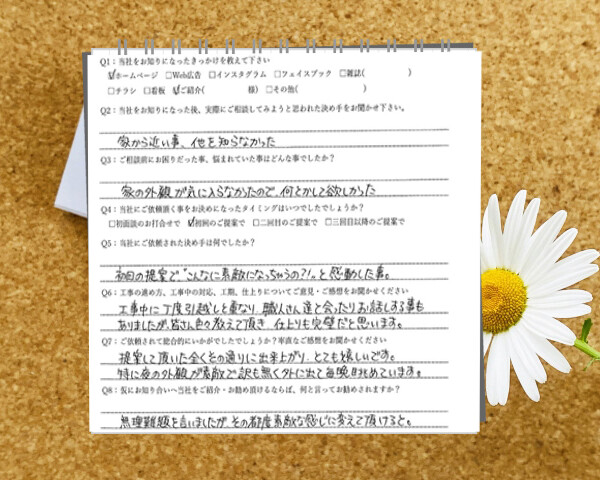 Q1：当社をお知りになったきっかけを教えて下さい
☑ホームページ □Web広告 □インスタグラム □フェイスブック □雑誌( )
□チラシ □看板 ☑ご紹介( 様) □その他( )
Q2：当社をお知りになった後、実際にご相談してみようと思われた決め手をお聞かせ下さい。
家から近い事、他を知らなかった
Q3：ご相談前にお困りだった事、悩まれていた事はどんな事でしたか？
家の外観が気に入らなかったので、何とかして欲しかった
Q4：当社にご依頼頂く事をお決めになったタイミングはいつでしたでしょうか？
□初面談のお打合せで ☑初回のご提案で □二回目のご提案で □三回目以降のご提案で
Q5：当社にご依頼された決め手は何でしたか？
初回の提案で“こんなに素敵になっちゃうの？！”と感動した事。
Q6：工事の進め方、工事中の対応、工期、仕上りについてご意見・ご感想をお聞かせください
工事中に丁度引越しと重なり、職人さん達と会ったりお話しする事も
ありましたが、皆さん色々教えて頂き、仕上りも完璧だと思います。
Q7：ご依頼されて総合的にいかがでしたでしょうか？率直なご感想をお聞かせください
提案して頂いた全くその通りに出来上がり、とても嬉しいです。
特に夜の外観が素敵で訳も無く外に出て毎晩眺めています。
Q8：仮にお知り合いへ当社をご紹介・お勧め頂けるならば、何と言ってお勧めされますか？
無理難題を言いましたが、その都度素敵な感じに変えて頂けると。